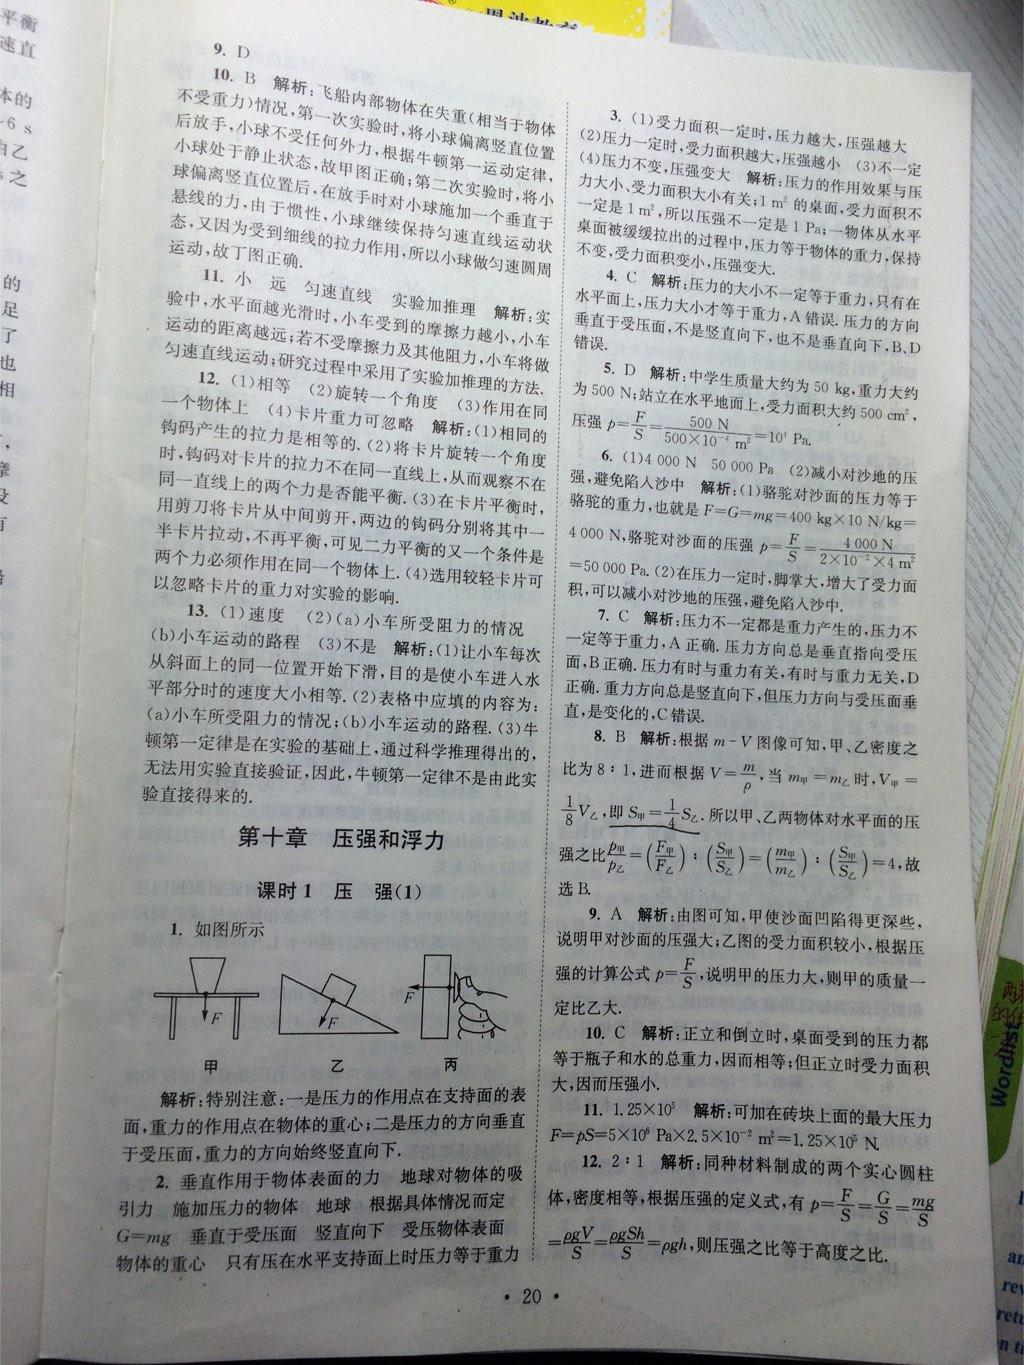 9. D
10. B 解析:飞船内部物体在失重(相当于物体
不受重力)情况,第一次实验时,将小球偏离竖直位置
后放手,小球不受任何外力,根据牛顿第一运动定律,
小球处于静止状态,故甲图正确;第二次实验时,将小
球偏离竖直位置后,在放手时对小球施加一个垂直于
悬线的力,由于惯性,小球继续保持匀速直线运动状
态,又因为受到细线的拉力作用,所以小球做匀速圆周
运动,故丁图正确.
11. 小 远 匀速直线 实验加推理 解析:实
验中,水平面越光滑时,小车受到的摩擦力越小,小车
运动的距离越远;若不受摩擦力及其他阻力,小车将做
匀速直线运动;研究过程中采用了实验加推理的方法.
12. (1)相等 (2)旋转一个角度 (3)作用在同
一个物体上 (4)卡片重力可忽略 解析:(1)相同的
钩码产生的拉力是相等的.(2)将卡片旋转一个角度
时,钩码对卡片的拉力不在同一直线上,从而观察不在
同一直线上的两个力是否能平衡.(3)在卡片平衡时,
用剪刀将卡片从中间剪开,两边的钩码分别将其中一
半卡片拉动,不再平衡,可见二力平衡的又一个条件是
两个力必须作用在同一个物体上.(4)选用较轻卡片可
以忽略卡片的重力对实验的影响.
13. (1)速度 (2)(a)小车所受阻力的情况
(b)小车运动的路程 (3)不是 解析:(1)让小车每次
从斜面上的同一位置开始下滑,目的是使小车进入水
平部分时的速度大小相等.(2)表格中应填的内容为:
(a)小车所受阻力的情况;(b)小车运动的路程.(3)牛
顿第一定律是在实验的基础上,通过科学推理得出的,
无法用实验直接验证,因此,牛顿第一定律不是由此实
验直接得来的.
第十章 压强和浮力
课时1 压 强(1)
1. 如图所示
F F F
甲 乙 丙
解析:特别注意:一是压力的作用点在支持面的表
面,重力的作用点在物体的重心;二是压力的方向垂直
于受压面,重力的方向始终竖直向下.
2. 垂直作用于物体表面的力 地球对物体的吸
引力 施加压力的物体 地球 根据具体情况而定
G=mg 垂直于受压面 竖直向下 受压物体表面
物体的重心 只有压在水平支持面上时压力等于重力
3. (1)受力面积一定时,压力越大,压强越大
(2)压力一定时,受力面积越大,压强越小 (3)不一定
(4)压力不变,压强变大 解析:压力的作用效果与压
力大小、受力面积大小有关;1 m² 的桌面,受力面积不
一定是 1 m²,所以压强不一定是 1 Pa;一物体从水平
桌面被缓缓拉出的过程中,压力等于物体的重力,保持
不变,受力面积变小,压强变大.
4. C 解析:压力的大小不一定等于重力,只有在
水平面上,压力大小才等于重力,A 错误.压力的方向
垂直于受压面,不是竖直向下,也不是垂直向下,B、D
错误.
5. D 解析:中学生质量大约为 50 kg,重力大约
为 500 N;站立在水平地面上,受力面积大约 500 cm²,
压强 p=F/S=500 N/(500×10⁻⁴ m²)=10⁴ Pa.
6. (1)4 000 N 50 000 Pa (2)减小对沙地的压
强,避免陷入沙中 解析:(1)骆驼对沙面的压力等于
骆驼的重力,也就是 F=G=mg=400 kg×10 N/kg=
4 000 N,骆驼对沙面的压强 p=F/S=4 000 N/(2×10⁻²×4 m²)
=50 000 Pa.(2)在压力一定时,脚掌大,增大了受力面
积,可以减小对沙地的压强,避免陷入沙中.
7. C 解析:压力不一定都是重力产生的,压力不
一定等于重力,A 正确.压力方向总是垂直指向受压
面,B 正确.压力有时与重力有关,有时与重力无关,D
正确.重力方向总是竖直向下,但压力方向与受压面垂
直,是变化的,C 错误.
8. B 解析:根据 m-V 图像可知,甲、乙密度之
比为 8∶1,进而根据 V=m/ρ,当 m甲=m乙 时,V甲=
1/8V乙,即 S甲=1/4S乙.所以甲、乙两物体对水平面的压
强之比p甲/p乙=(F甲/F乙)∶(S甲/S乙)=(m甲/m乙)∶(S甲/S乙)=4,故
选 B.
9. A 解析:由图可知,甲使沙面凹陷得更深些,
说明甲对沙面的压强大;乙图的受力面积较小,根据压
强的计算公式 p=F/S,说明甲的压力大,则甲的质量一
定比乙大.
10. C 解析:正立和倒立时,桌面受到的压力都
等于瓶子和水的总重力,因而相等;但正立时受力面积
大,因而压强小.
11. 1.25×10⁵ 解析:可加在砖块上面的最大压力
F=pS=5×10⁶ Pa×2.5×10⁻² m²=1.25×10⁵ N.
12. 2∶1 解析:同种材料制成的两个实心圆柱
体,密度相等,根据压强的定义式,有 p=F/S=G/S=mg/S
=ρgV/S=ρgSh/S=ρgh,则压强之比等于高度之比.
· 20 ·
Wordlist